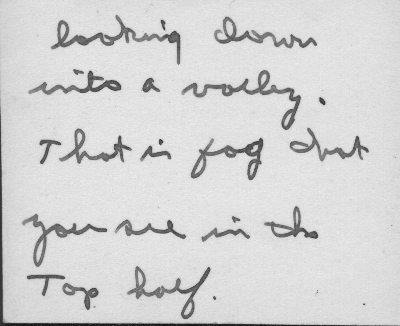 looking down
into a valley.
That is fog that
you see in the
Top half.